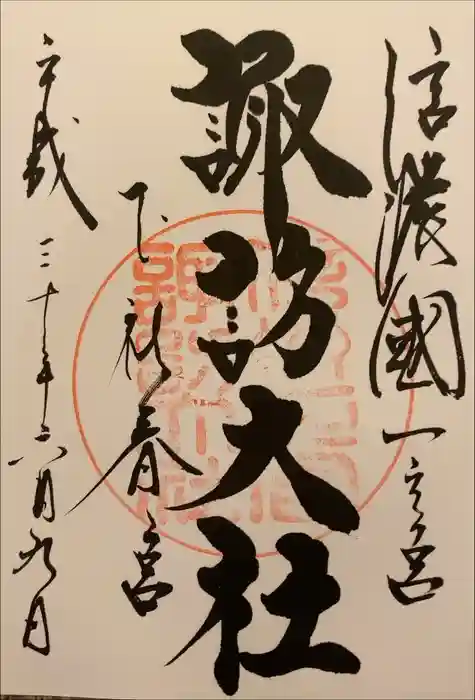 信濃國一之宮
諏訪大社
下社春宮
平成三十年六月九日